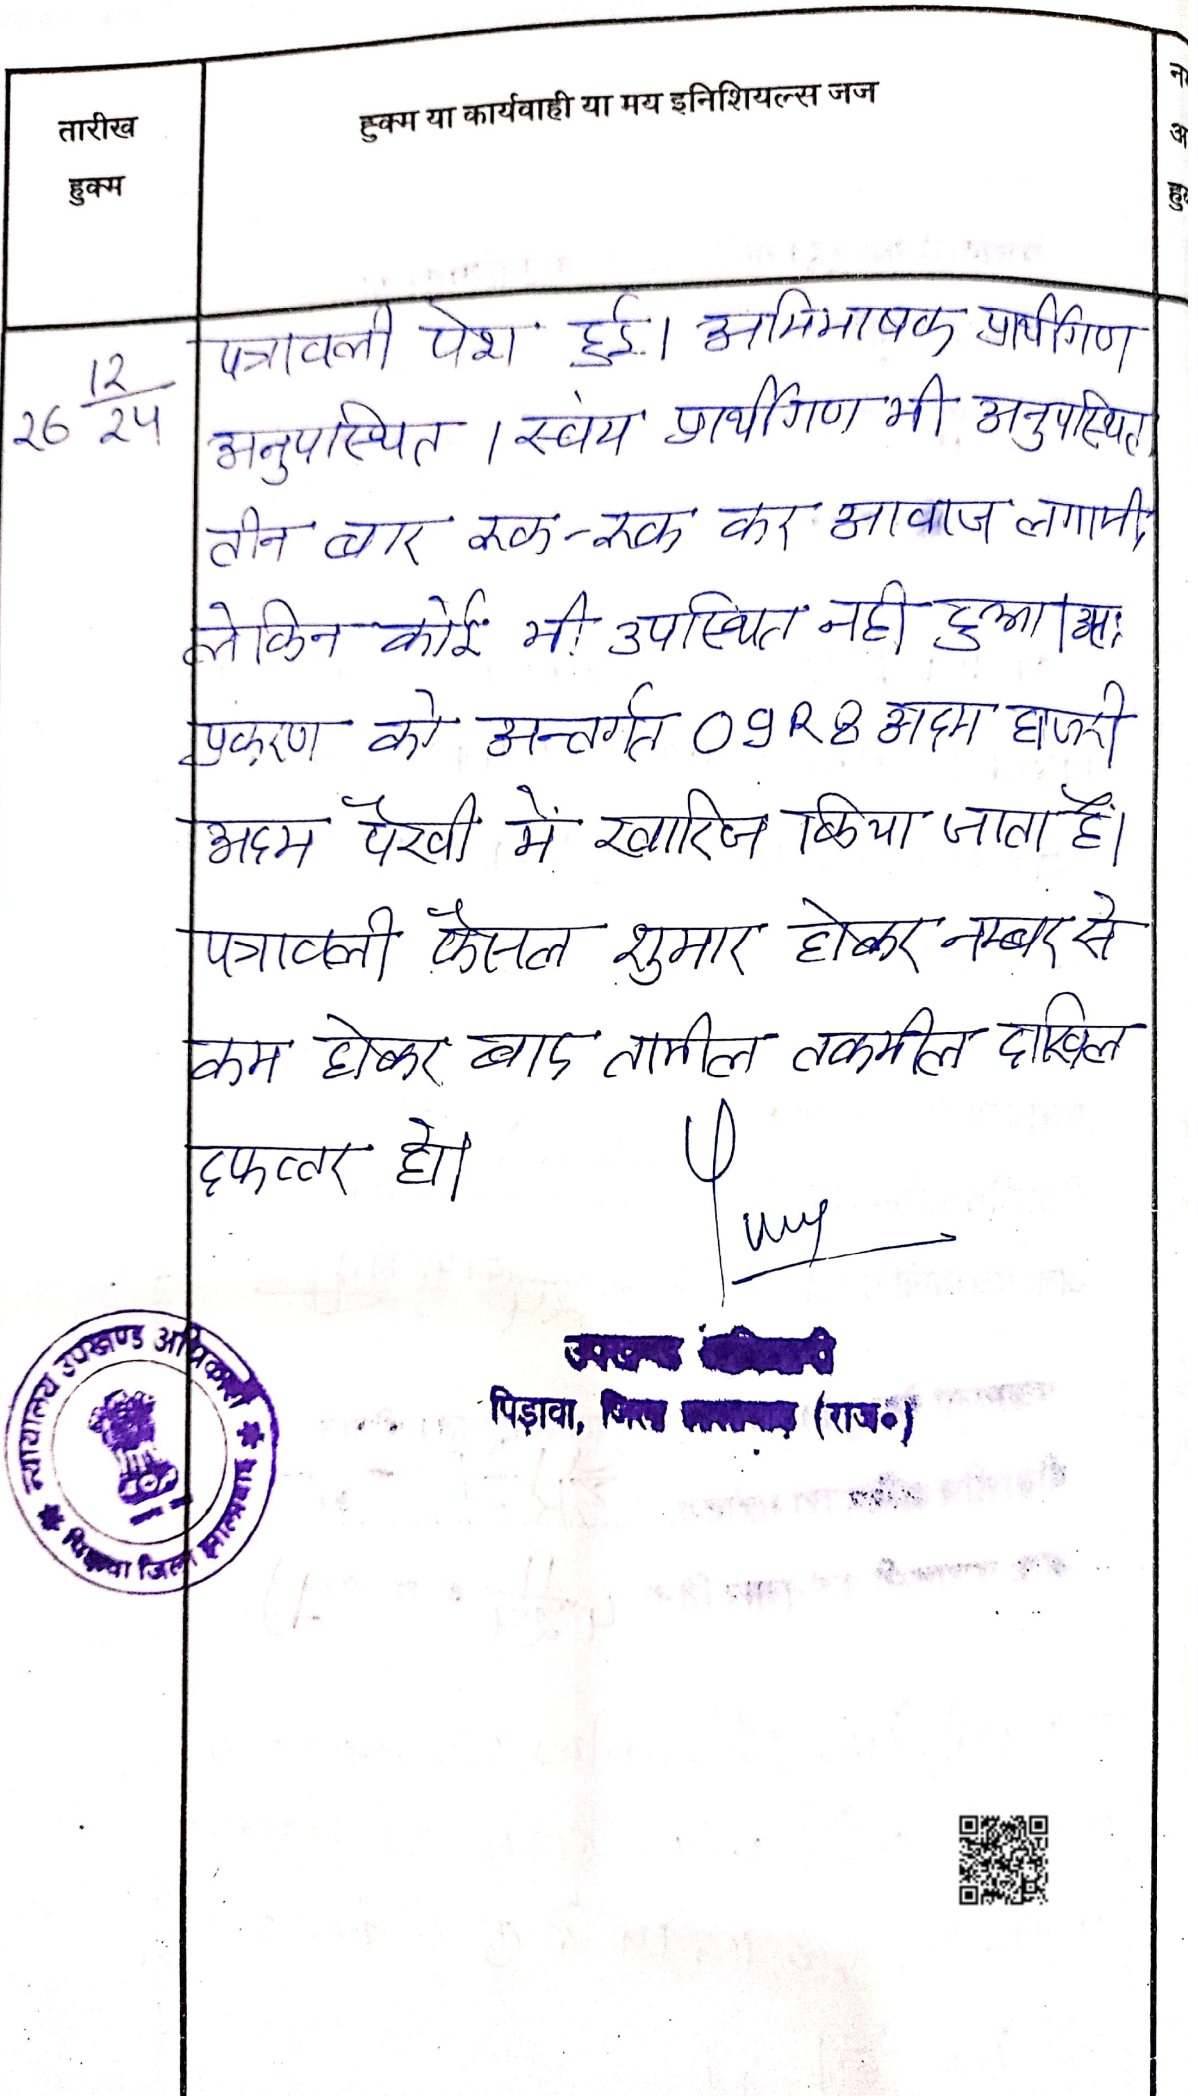 तारीख
हुक्म
हुक्म या कार्यवाही या मय इनिशियल्स जज
26 12/24
पत्रावली पेश हुई। अभिभाषक प्रार्थीगण
अनुपस्थित । स्वंय प्रार्थीगण भी अनुपस्थित।
तीन बार रूक-रूक कर आवाज लगायी,
लेकिन कोई भी उपस्थित नही हुआ। अतः
प्रकरण को अन्तर्गत O9R8 अदम हाजरी
अदम पैरवी में खारिज किया जाता है।
पत्रावली फैसल शुमार होकर नम्बर से
कम होकर बाद तामील तकमील दाखिल
दफ्तर हो।
उपखण्ड
पिड़ावा, जिला (राज०)
न्यायालय उपखण्ड अधिकारी
पिड़ावा जिला झालावाड़